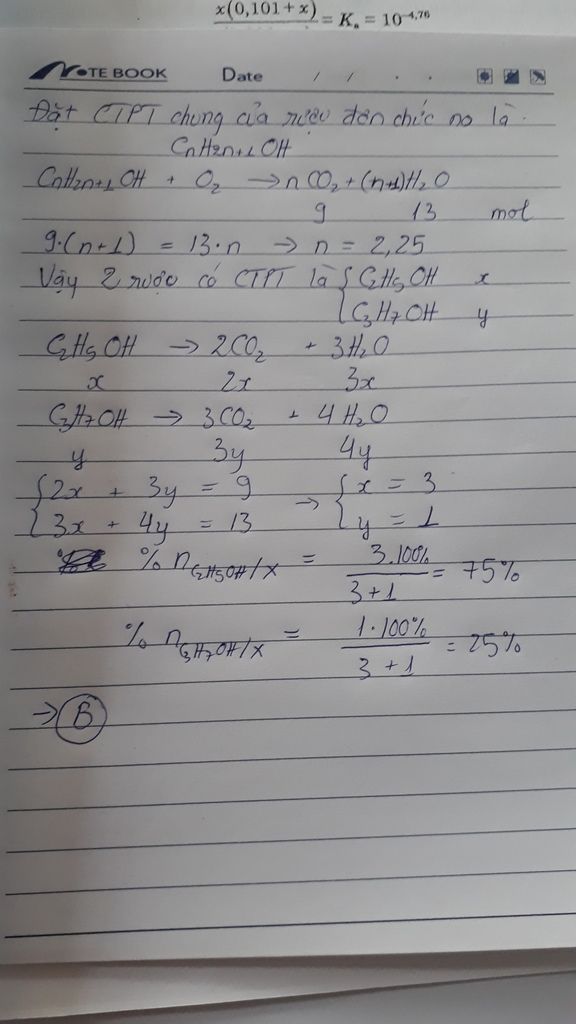 x(0,101 + x) / = Kₐ = 10⁻⁴,⁷⁶
NOTE BOOK Date / / . .
Đặt CTPT chung của rượu đơn chức no là.
CnH2n+1OH
CnH2n+1OH + O2 → nCO2 + (n+1)H2O
9 13 mol
9.(n+1) = 13.n → n = 2,25
Vậy 2 rượu có CTPT là { C2H5OH x
C3H7OH y
C2H5OH → 2CO2 + 3H2O
x 2x 3x
C3H7OH → 3CO2 + 4H2O
y 3y 4y
{ 2x + 3y = 9 → { x = 3
3x + 4y = 13 y = 1
% nC2H5OH/X = 3.100% / 3+1 = 75%
% nC3H7OH/X = 1.100% / 3+1 = 25%
→ B